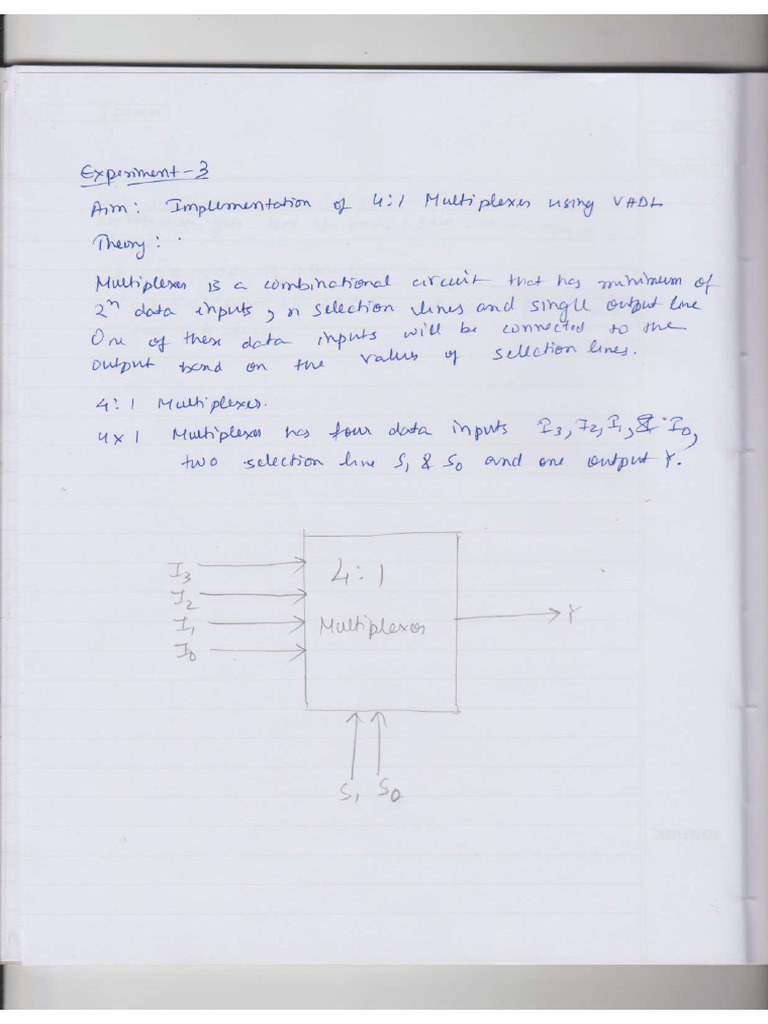 Experiment-3
Aim: Implementation of 4:1 Multiplexer using VHDL
Theory:
Multiplexer is a combinational circuit that has minimum of
2ⁿ data inputs, n selection lines and single output line
One of these data inputs will be connected to the
output based on the values of selection lines.
4:1 Multiplexer.
4x1 Multiplexer has four data inputs I3, I2, I1, & I0,
two selection line S1 & S0 and one output Y.
I3
I2
I1
I0
4:1
Multiplexer
Y
S1 S0